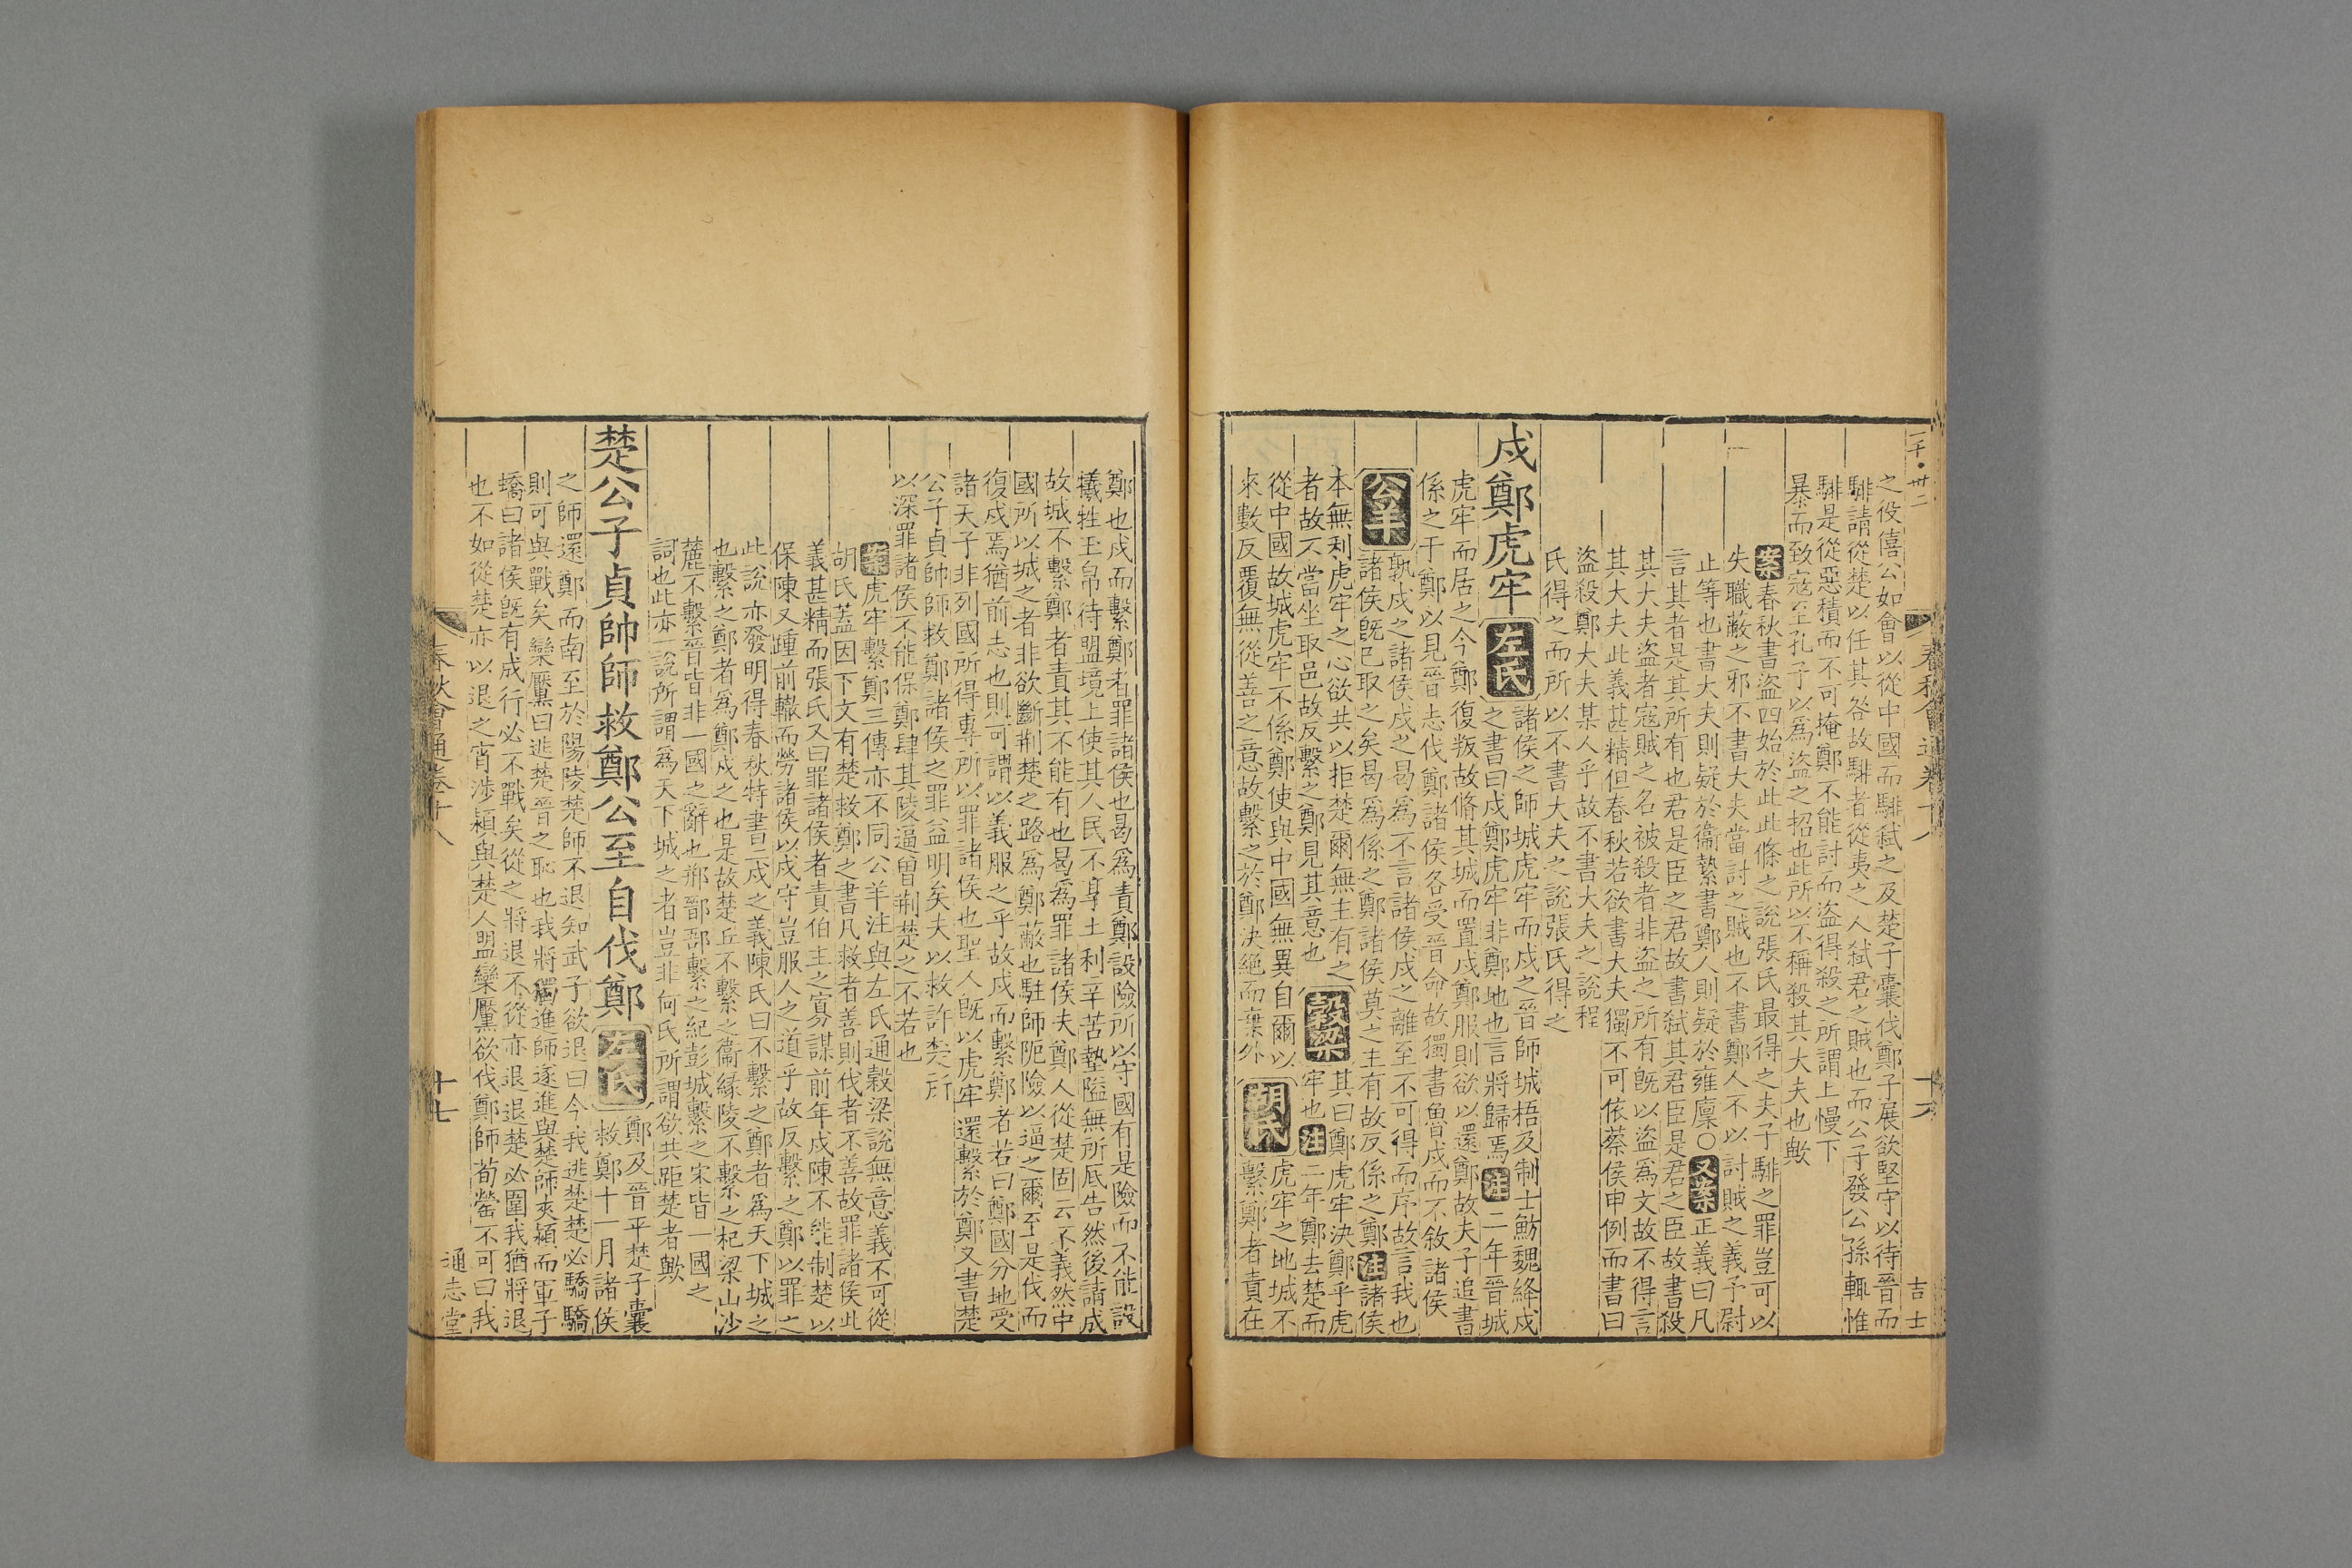 一千·卅二
春秋會通卷十八
十六
吉士
之役僖公如會以從中國而騑弑之及楚子囊伐鄭子展欲堅守以待晉而
騑請從楚以任其咎故騑者從夷之人弑君之賊也而公子發公孫輒惟
騑是從惡積而不可掩鄭不能討而盜得殺之所謂上慢下
暴而致寇至孔子以爲盜之招也此所以不稱殺其大夫也歟
案春秋書盜四始於此此條之說張氏最得之夫子騑之罪豈可以
失職蔽之邪不書大夫當討之賊也不書鄭人不以討賊之義予尉
止等也書大夫則疑於衞縶書鄭人則疑於雍廩○又案正義曰凡
言其者是其所有也君是臣之君故書弑其君臣是君之臣故書殺
其大夫盜者寇賊之名被殺者非盜之所有旣以盜爲文故不得言
其大夫此義甚精但春秋若欲書大夫獨不可依蔡侯申例而書曰
盜殺鄭大夫某人乎故不書大夫之說程
氏得之而所以不書大夫之說張氏得之
戍鄭虎牢
左氏
諸侯之師城虎牢而戍之晉師城梧及制士魴魏絳戍
之書曰戍鄭虎牢非鄭地也言將歸焉注二年晉城
虎牢而居之今鄭復叛故脩其城而置戍鄭服則欲以還鄭故夫子追書
係之于鄭以見晉志伐鄭諸侯各受晉命故獨書魯戍而不敘諸侯
公羊
孰戍之諸侯戍之曷爲不言諸侯戍之離至不可得而序故言我也
諸侯旣已取之矣曷爲係之鄭諸侯莫之主有故反係之鄭注諸侯
本無利虎牢之心欲共以拒楚爾無主有之
者故不當坐取邑故反繫之鄭見其意也
穀梁
其曰鄭虎牢決鄭乎虎
牢也注二年鄭去楚而
從中國故城虎牢不係鄭使與中國無異自爾以
來數反覆無從善之意故繫之於鄭決絕而棄外
胡氏
虎牢之地城不
繫鄭者責在
鄭也戍而繫鄭者罪諸侯也曷爲責鄭設險所以守國有是險而不能設
犧牲玉帛待盟境上使其人民不享土利辛苦墊隘無所底告然後請成
故城不繫鄭者責其不能有也曷爲罪諸侯夫鄭人從楚固云不義然中
國所以城之者非欲斷荆楚之路爲鄭蔽也駐師阨險以逼之爾至是伐而
復戍焉猶前志也則可謂以義服之乎故戍而繫鄭者若曰鄭國分地受
諸天子非列國所得專所以罪諸侯也聖人旣以虎牢還繫於鄭又書楚
公子貞帥師救鄭諸侯之罪益明矣夫以救許楚所
以深罪諸侯不能保鄭肆其陵逼曾荆楚之不若也
案虎牢繫鄭三傳亦不同公羊注與左氏通穀梁說無意義不可從
胡氏蓋因下文有楚救鄭之書凡救者善則伐者不善故罪諸侯此
義甚精而張氏又曰罪諸侯者責伯主之寡謀前年戍陳不能制楚以
保陳又踵前轍而勞諸侯以戍守豈服人之道乎故反繫之鄭以罪之
此說亦發明得春秋特書二戍之義陳氏曰不繫之鄭者爲天下城之
也繫之鄭者爲鄭戍之也是故楚丘不繫之衞緣陵不繫之杞梁山沙
麓不繫晉皆非一國之辭也邢鄑郚繫之紀彭城繫之宋皆一國之
詞也此亦一說所謂爲天下城之者豈非何氏所謂欲共距楚者歟
楚公子貞帥師救鄭公至自伐鄭
左氏
鄭及晉平楚子囊
救鄭十一月諸侯
之師還鄭而南至於陽陵楚師不退知武子欲退曰今我逃楚楚必驕驕
則可與戰矣欒黶曰逃楚晉之恥也我將獨進師遂進與楚師夾潁而軍子
蟜曰諸侯旣有成行必不戰矣從之將退不從亦退退楚必圍我猶將退
也不如從楚亦以退之宵涉潁與楚人盟欒黶欲伐鄭師荀罃不可曰我
春秋會通卷十八
十七
通志堂